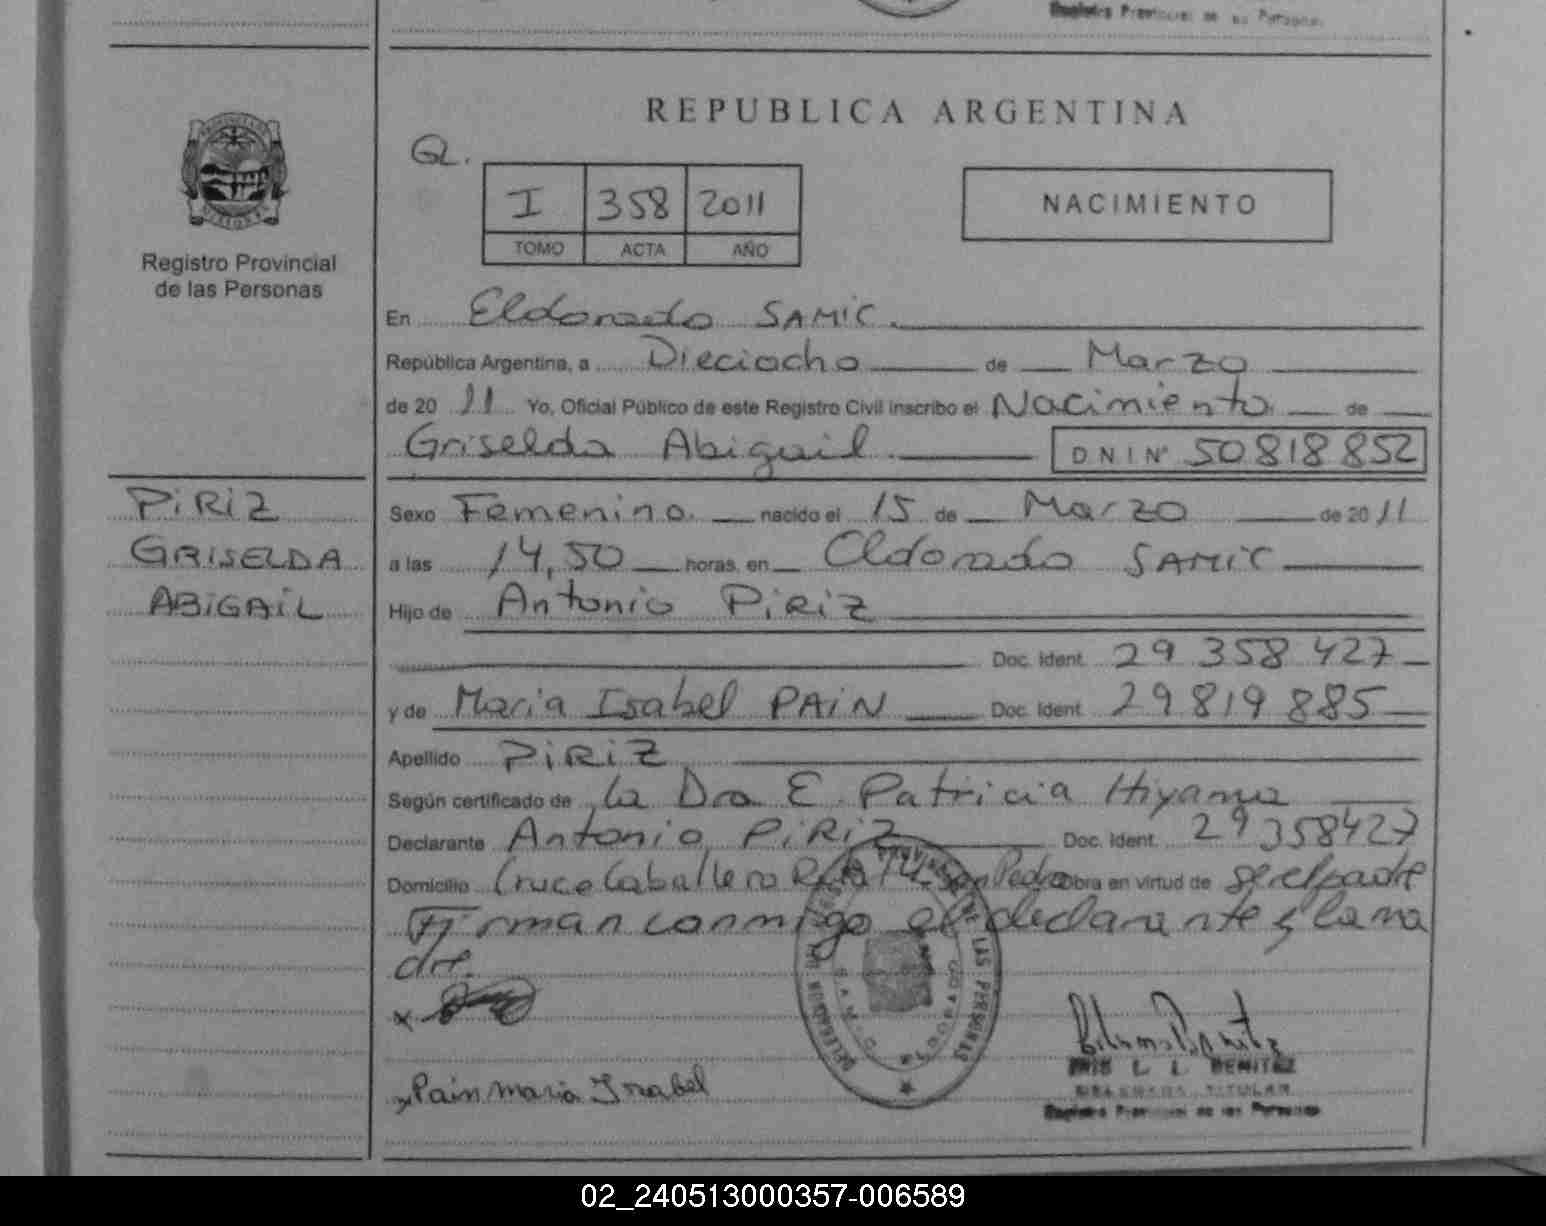 Registro Provincial de las Personas
REPUBLICA ARGENTINA
GL.
I 358 2011
TOMO ACTA AÑO
NACIMIENTO
Registro Provincial
de las Personas
En Eldorado SAMIC.
República Argentina, a Dieciocho de Marzo
de 20 11 Yo, Oficial Público de este Registro Civil inscribo el Nacimiento de
Griselda Abigail. DNI Nº 50818852
PiRiZ
GRISELDA
ABiGAiL
Sexo Femenino. nacido el 15 de Marzo de 20 11
a las 14,50 horas, en Eldorado SAMIC
Hijo de Antonio PiRiZ
Doc. Ident. 29 358 427
y de Maria Isabel PAiN Doc. Ident. 29 819 885
Apellido PiRiZ
Según certificado de la Dra E. Patricia Hiyama
Declarante Antonio PiRiZ Doc. Ident. 29358427
Domicilio Cruce Caballero San Pedro Obra en virtud de ser el padre
Firman conmigo el declarante y la ma
dre.
x
x Pain maria Isabel
DELEGACION DEL REGISTRO PROVINCIAL DE LAS PERSONAS
SAMIC
ELDORADO
IRIS L. L. BENITEZ
DELEGADA TITULAR
Registro Provincial de las Personas
02_240513000357-006589